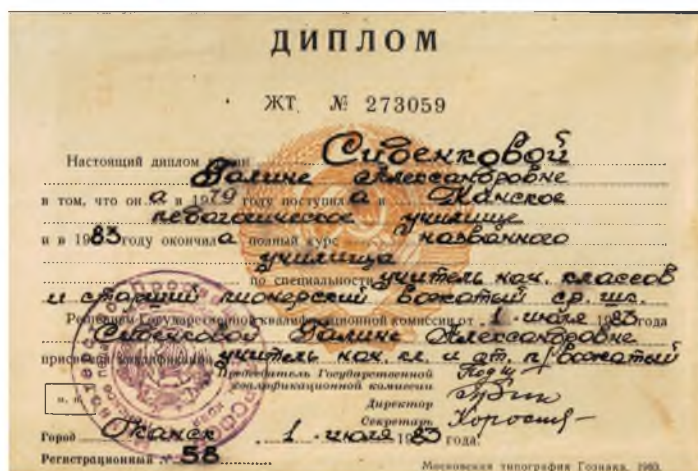 ДИПЛОМ
ЖТ № 273059
Настоящий диплом Сивенковой
Галине Александровне
в том, что он а в 1979 году поступил а в Канское
педагогическое училище
и в 1983 году окончил а полный курс названного
училища
по специальности учитель нач. классов
и старший пионерский вожатый ср. шк.
Решением Государственной квалификационной комиссии от 1 июля 1983 года
Сивенковой Галине Александровне
присвоена квалификация учитель нач. кл. и ст. п/вожатый
Председатель Государственной
квалификационной комиссии
Директор
Секретарь
м. п.
Город Канск 1 июля 1983 года.
Регистрационный № 58
Московская типография Гознака. 1980.